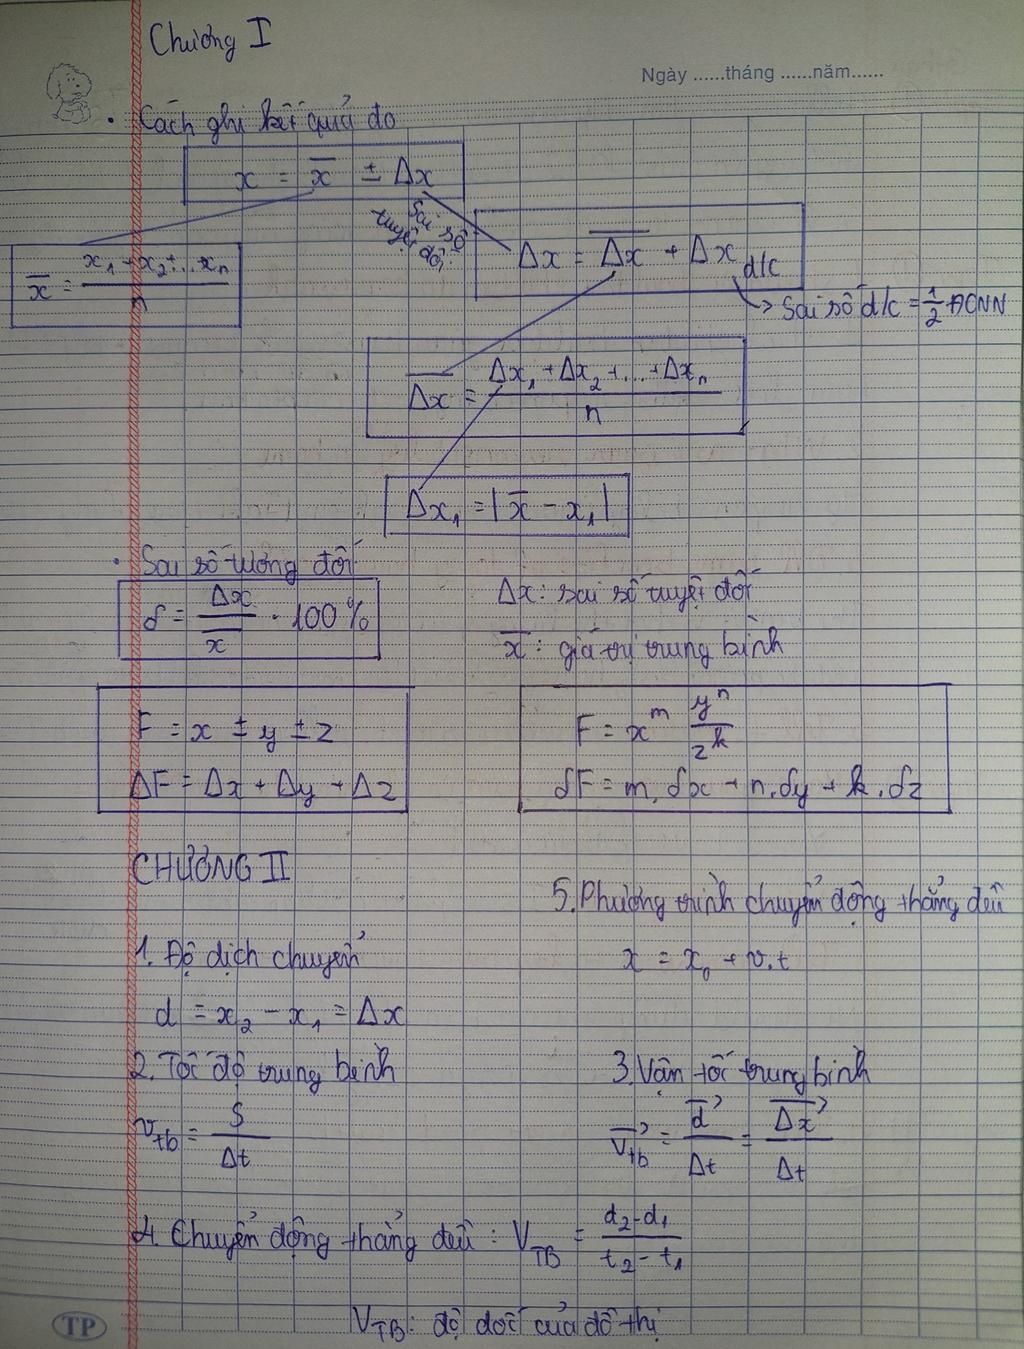 Chương I
Ngày ......tháng ......năm......
• Cách ghi kết quả đo
x = x̅ ± Δx
Sai số tuyệt đối
x̅ = (x₁ + x₂ + ... xₙ) / n
Δx = Δx̅ + Δx d/c
→ Sai số d/c = 1/2 ĐCNN
Δx̅ = (Δx₁ + Δx₂ + ... + Δxₙ) / n
Δx₁ = |x̅ - x₁|
• Sai số tương đối
δ = Δx / x̅ . 100%
Δx: sai số tuyệt đối
x̅: giá trị trung bình
F = x ± y ± z
ΔF = Δx + Δy + Δz
F = xᵐ yⁿ / zᵏ
δF = m.δx + n.δy + k.δz
CHƯƠNG II
5. Phương trình chuyển động thẳng đều
x = x₀ + v.t
1. Độ dịch chuyển
d = x₂ - x₁ = Δx
2. Tốc độ trung bình
v tb = S / Δt
3. Vận tốc trung bình
v⃗ tb = d⃗ / Δt = Δx⃗ / Δt
4. Chuyển động thẳng đều : V TB = (d₂ - d₁) / (t₂ - t₁)
V TB : độ dốc của đồ thị
TP